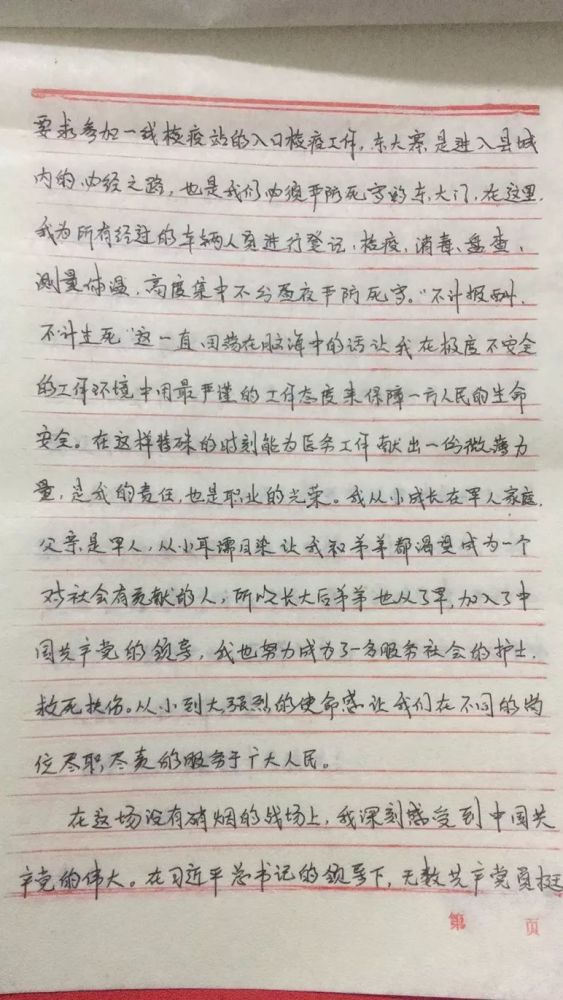 要求参加一线检疫站的入口检疫工作，东大寨是进入县城
内的必经之路，也是我们必须严防死守的东大门，在这里，
我为所有经过的车辆人员进行登记、检疫、消毒、盘查、
测量体温，高度集中不分昼夜严防死守。“不计报酬，
不计生死”这一直回荡在脑海中的话让我在极度不安全
的工作环境中用最严谨的工作态度来保障一方人民的生命
安全。在这样特殊的时刻能为医务工作献出一份微薄力
量，是我的责任，也是职业的光荣。我从小成长在军人家庭，
父亲是军人，从小耳濡目染让我和弟弟都渴望成为一个
对社会有贡献的人，所以长大后弟弟也从了军，加入了中
国共产党的领导，我也努力成为了一名服务社会的护士，
救死扶伤。从小到大强烈的使命感让我们在不同的岗
位尽职尽责的服务于广大人民。
在这场没有硝烟的战场上，我深刻感受到中国共
产党的伟大。在习近平总书记的领导下，无数共产党员挺
第 页